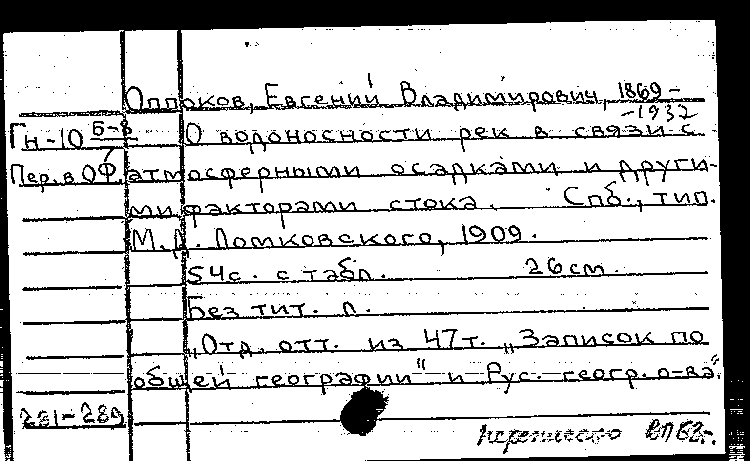 Оппоков, Евгений Владимирович, 1869-
-1932
Гн-10 Б-8
7
О водоносности рек в связи с
Пер. в ОФ.
атмосферными осадками и други-
ми факторами стока. Спб., тип.
М. Д. Ломковского, 1909.
54с. с табл. 26 см.
Без тит. л.
„Отд. отт. из 47т. „Записок по
общей географии" и Рус. геогр. о-ва".
281-289
переписано